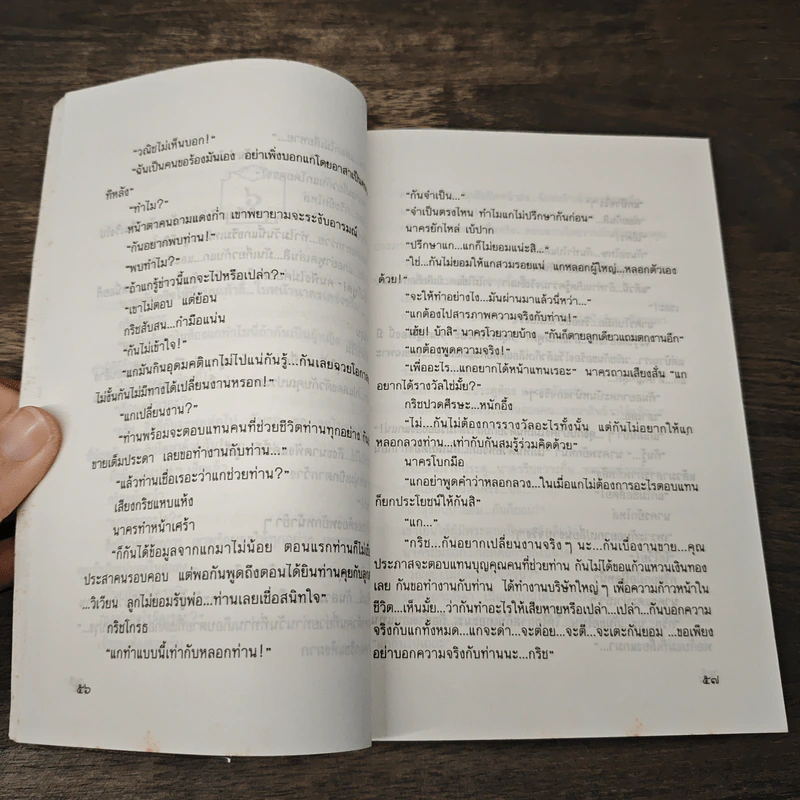 "วณิชไม่เห็นบอก!"
"ฉันเป็นคนขอร้องมันเอง อย่าเพิ่งบอกแกโดยอาสาเป็น
ทีหลัง"
"ทำไม?"
หน้าตาคนถามแดงก่ำ เขาพยายามจะระงับอารมณ์
"กันอยากพบท่าน!"
"พบทำไม?"
"ถ้าแกรู้ข่าวนี้แกจะไปหรือเปล่า?"
เขาไม่ตอบ แต่ย้อน
กริชสับสน...กำมือแน่น
"กันไม่เข้าใจ!"
"แกมันกินอุดมคติแกไม่ไปแน่กันรู้...กันเลยฉวยโอกาส
ไม่งั้นกันไม่มีทางได้เปลี่ยนงานหรอก!"
"แกเปลี่ยนงาน?"
"ท่านพร้อมจะตอบแทนคนที่ช่วยชีวิตท่านทุกอย่าง
ขายเต็มประดา เลยขอทำงานกับท่าน..."
"แล้วท่านเชื่อเรอะว่าแกช่วยท่าน?"
เสียงกริชแหบแห้ง
นาครทำหน้าเศร้า
"ก็กันได้ข้อมูลจากแกมาไม่น้อย ตอนแรกท่านก็ไม่
ประสาคนรอบคอบ แต่พอกันพูดถึงตอนได้ยินท่านคุยกับลูก
...วิเวียน ลูกไม่ยอมรับพ่อ...ท่านเลยเชื่อสนิทใจ"
กริชโกรธ
"แกทำแบบนี้เท่ากับหลอกท่าน!"
๕๖
"กันจำเป็น..."
"จำเป็นตรงไหน ทำไมแกไม่ปรึกษากันก่อน"
นาครยักไหล่ เบ้ปาก
"ปรึกษาแก...แกก็ไม่ยอมแน่ะสิ..."
"ใช่...กันไม่ยอมให้แกสวมรอยแน่ แกหลอกผู้ใหญ่...หลอกตัวเอง
ด้วย!"
"จะให้ทำอย่างไง...มันผ่านมาแล้วนี่หว่า..."
"แกต้องไปสารภาพความจริงกับท่าน!"
"เฮ้ย! บ้าสิ" นาครโวยวายบ้าง "กันก็ตายลูกเดียวแถมตกงานอีก"
"แกต้องพูดความจริง!"
"เพื่ออะไร...แกอยากได้หน้าแทนเรอะ" นาครถามเสียงลั่น "แก
อยากได้รางวัลใช่มั้ย?"
กริชปวดศีรษะ...หนักอึ้ง
"ไม่...กันไม่ต้องการรางวัลอะไรทั้งนั้น แต่กันไม่อยากให้แก
หลอกลวงท่าน...เท่ากับกันสมรู้ร่วมคิดด้วย"
นาครโบกมือ
"แกอย่าพูดคำว่าหลอกลวง...ในเมื่อแกไม่ต้องการอะไรตอบแทน
ก็ยกประโยชน์ให้กันสิ"
"แก..."
"กริช...กันอยากเปลี่ยนงานจริงๆ นะ...กันเบื่องานขาย...คุณ
ประภาสจะตอบแทนบุญคุณคนที่ช่วยท่าน กันไม่ได้ขอแก้วแหวนเงินทอง
เลย กันขอทำงานกับท่าน ได้ทำงานบริษัทใหญ่ๆ เพื่อความก้าวหน้าใน
ชีวิต...เห็นมั้ย...ว่ากันทำอะไรให้เสียหายหรือเปล่า...เปล่า...กันบอกความ
จริงกับแกทั้งหมด...แกจะด่า...จะต่อย...จะตี...จะเตะกันยอม ...ขอเพียง
อย่าบอกความจริงกับท่านนะ...กริช"
๕๗